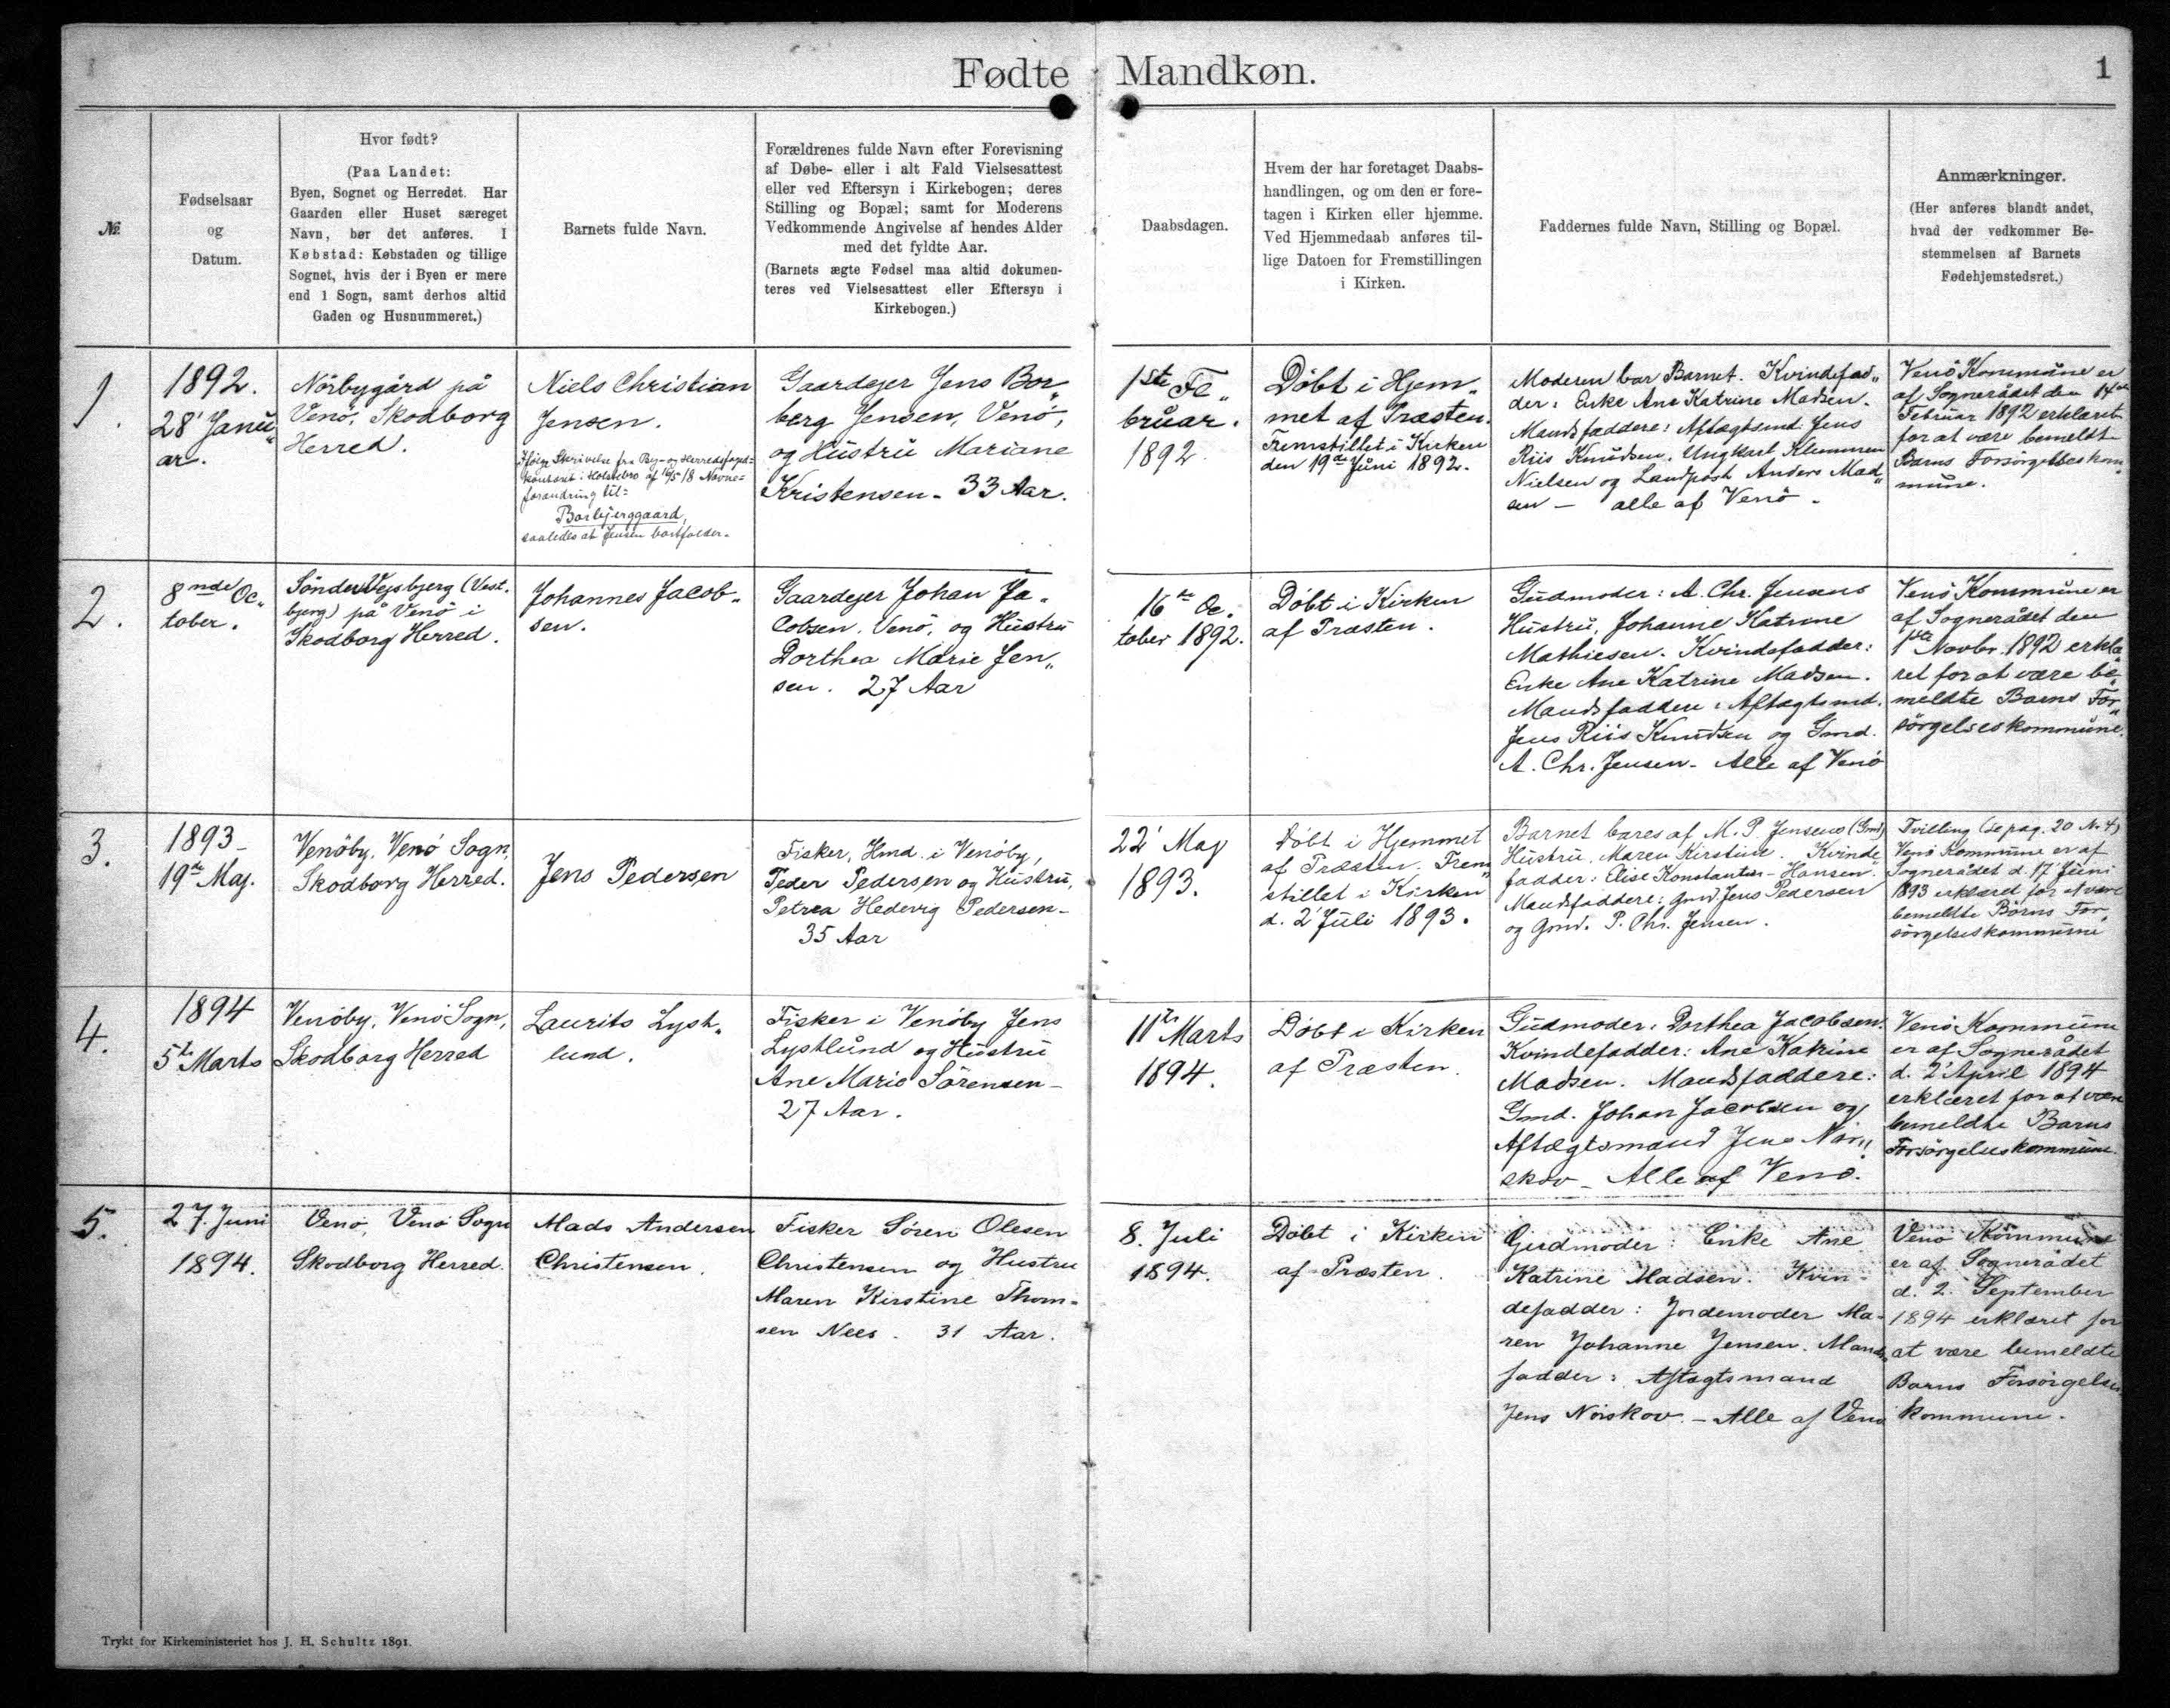 Fødte Mandkøn.
1
№
Fødselsaar
og
Datum.
Hvor født?
(Paa Landet:
Byen, Sognet og Herredet. Har
Gaarden eller Huset særeget
Navn, bør det anføres. I
Købstad: Købstaden og tillige
Sognet, hvis der i Byen er mere
end 1 Sogn, samt derhos altid
Gaden og Husnummeret.)
Barnets fulde Navn.
Forældrenes fulde Navn efter Forevisning
af Døbe- eller i alt Fald Vielsesattest
eller ved Eftersyn i Kirkebogen; deres
Stilling og Bopæl; samt for Moderens
Vedkommende Angivelse af hendes Alder
med det fyldte Aar.
(Barnets ægte Fødsel maa altid dokumen-
teres ved Vielsesattest eller Eftersyn i
Kirkebogen.)
Daabsdagen.
Hvem der har foretaget Daabs-
handlingen, og om den er fore-
tagen i Kirken eller hjemme.
Ved Hjemmedaab anføres til-
lige Datoen for Fremstillingen
i Kirken.
Faddernes fulde Navn, Stilling og Bopæl.
Anmærkninger.
(Her anføres blandt andet,
hvad der vedkommer Be-
stemmelsen af Barnets
Fødehjemstedsret.)
1.
1892.
28' Janu„
ar.
Nörbygård på
Venö, Skodborg
Herred.
Niels Christian
Jensen.
Ifølge Skrivelse fra By- og Herredsfoged-
kontoret i Holstebro af 16/5 18 Navne=
forandring til=
Borbjerggaard,
saaledes at Jensen bortfalder.
Gaardejer Jens Bor„
berg Jensen, Venö,
og Hustru Mariane
Kristensen - 33 Aar.
1ste Fe„
bruar.
1892.
Döbt i Hjem„
met af Præsten.
Fremstillet i Kirken
den 19de Juni 1892.
Moderen bar Barnet. Kvindefad„
der: Enke Ane Katrine Madsen.
Mandsfaddere: Aftægtsmd. Jens
Riis Knudsen, Ungkarl Klemmen
Nielsen og Landpost Anders Mad„
sen - alle af Venö.
Venö Kommune er
af Sognerådet den 14de
Februar 1892 erklæret
for at være bemeldte
Barns Forsörgelseskom„
mune.
2.
8nde Oc„
tober.
Sönder Vejsbjerg (Vest.
bjerg) på Venö i
Skodborg Herred.
Johannes Jacob„
sen.
Gaardejer Johan Ja„
cobsen, Venö, og Hustru
Dorthea Marie Jen„
sen. 27 Aar
16de Oc„
tober 1892.
Döbt i Kirken
af Præsten.
Gudmoder: A. Chr. Jensens
Hustru, Johanne Katrine
Mathiesen. Kvindefadder:
Enke Ane Katrine Madsen.
Mandsfaddere: Aftægtsmd.
Jens Riis Knudsen og Gmd.
A. Chr. Jensen - Alle af Venö
Venö Kommune er
af Sognerådet den
1ste Novbr. 1892 erklæ„
ret for at være be„
meldte Barns For„
sörgelseskommune.
3.
1893-
19de Maj.
Venöby, Venö Sogn,
Skodborg Herred.
Jens Pedersen
Fisker, Hmd. i Venöby,
Peder Pedersen og Hustru,
Petrea Hedevig Pedersen-
35 Aar
22' Maj
1893.
Döbt i Hjemmet
af Præsten, Frem„
stillet i Kirken
d. 2' Juli 1893.
Barnet bares af M. P. Jensens (Gmd)
Hustru, Maren Kirstine. Kvinde„
fadder: Elise Konstantin-Hansen.
Mandsfaddere: Gmd. Jens Pedersen
og Gmd. P. Chr. Jensen.
Tvilling (se pag. 20 № 4)
Venö Kommune er af
Sognerådet d. 17' Juni
1893 erklæret for at være
bemeldte Börns For„
sörgelseskommune
4.
1894
5te Marts
Venöby, Venö Sogn,
Skodborg Herred
Laurits Lyst„
lund.
Fisker i Venöby Jens
Lystlund og Hustru
Ane Marie Sörensen-
27 Aar.
11te Marts
1894.
Döbt i Kirken
af Præsten.
Gudmoder: Dorthea Jacobsen.
Kvindefadder: Ane Katrine
Madsen. Mandsfaddere:
Gmd. Johan Jacobsen og
Aftægtsmand Jens Nör„
skov - Alle af Venö.
Venö Kommune
er af Sognerådet
d. 2' April 1894
erklæret for at være
bemeldte Barns
Forsörgelseskommune.
5.
27. Juni
1894.
Venø, Venø Sogn
Skodborg Herred.
Mads Andersen
Christensen.
Fisker Søren Olesen
Christensen og Hustru
Maren Kirstine Thom-
sen Nees. 31 Aar.
8. Juli
1894.
Døbt i Kirken
af Præsten.
Gudmoder: Enke Ane
Katrine Madsen. Kvin-
defadder: Jordemoder Ma-
ren Johanne Jensen. Mands-
fadder: Aftægtsmand
Jens Nørskov. - Alle af Venø
Venø Kommune
er af Sognerådet
d. 2. September
1894 erklæret for
at være bemeldte
Barns Forsørgelses
kommune.
Trykt for Kirkeministeriet hos J. H. Schultz 1891.